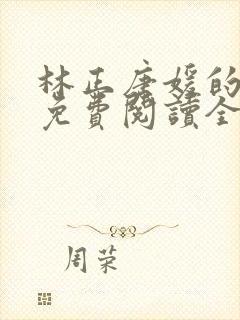 林正唐媛的
免費閱讀全
周荣